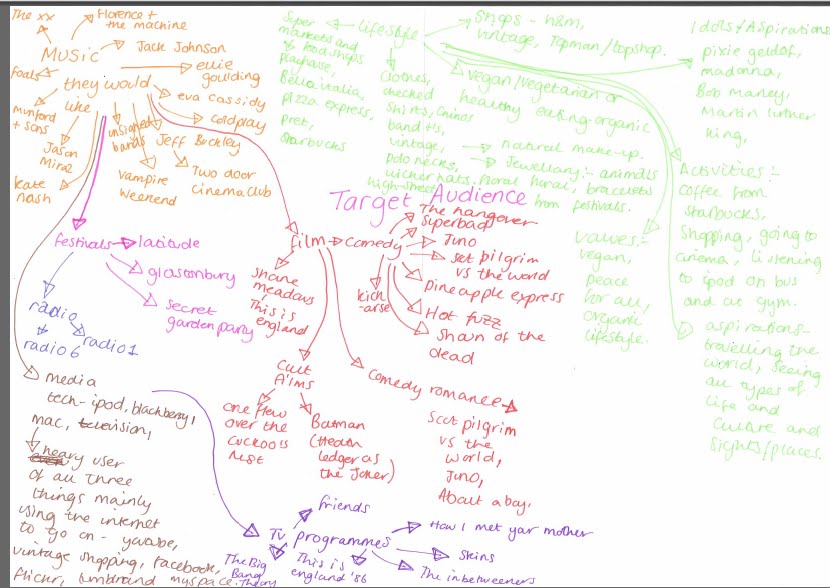 The xx
Florence +
the machine
MUSIC
Jack Johnson
foals
they would
like
ellie
goulding
eva cassidy
coldplay
Munford
+ sons
unsigned
bands
Jeff Buckley
Jason
Mraz
Vampire
Weekend
Two door
cinema club
kate
nash
Super
markets and
food shops
Bella italia,
pizza express,
pret,
Starbucks
Lifestyle
Shops - h&m,
vintage, Topman/topshop.
Vegan/vegetarian or
healthy eating-organic
Clothes,
checked
shirts, Chinos
band t's,
vintage,
polo necks,
high-street
natural make-up.
Jewellary:- animals
floral, bracelets
from festivals.
Idols/Aspirations
pixie geldof,
madonna,
Bob Marley,
Martin luther
king,
Activities:-
coffee from
Starbucks,
shopping, going to
cinema, listening
to ipod on bus
and at gym.
aspirations-
travelling the
world, seeing
all types of
life and
culture and
sights/places.
values:-
vegan,
peace
for all,
organic
lifestyle.
Target Audience
festivals
latitude
glastonbury
secret
garden party
radio
radio 6
radio 1
film
Comedy
The hangover
Superbad
Juno
scot pilgrim
vs the world
pineapple express
kick
-arse
Hot fuzz
Shaun of the
dead
Shane
meadows
This is
england
Cult
films
one flew
over the
cuckoo's
nest
Batman
(Heath
ledger as
the Joker)
Comedy romance
Scot pilgrim
vs the
world,
Juno,
About a boy.
media
tech-ipod, blackberry,
mac, television,
heavy user
of all three
things mainly
using the internet
to go on- youtube,
vintage shopping, facebook,
flickr, tumblr and myspace.
TV programmes
friends
How I met your mother
Skins
The inbetweeners
This is
england '86
The Big
Bang
Theory